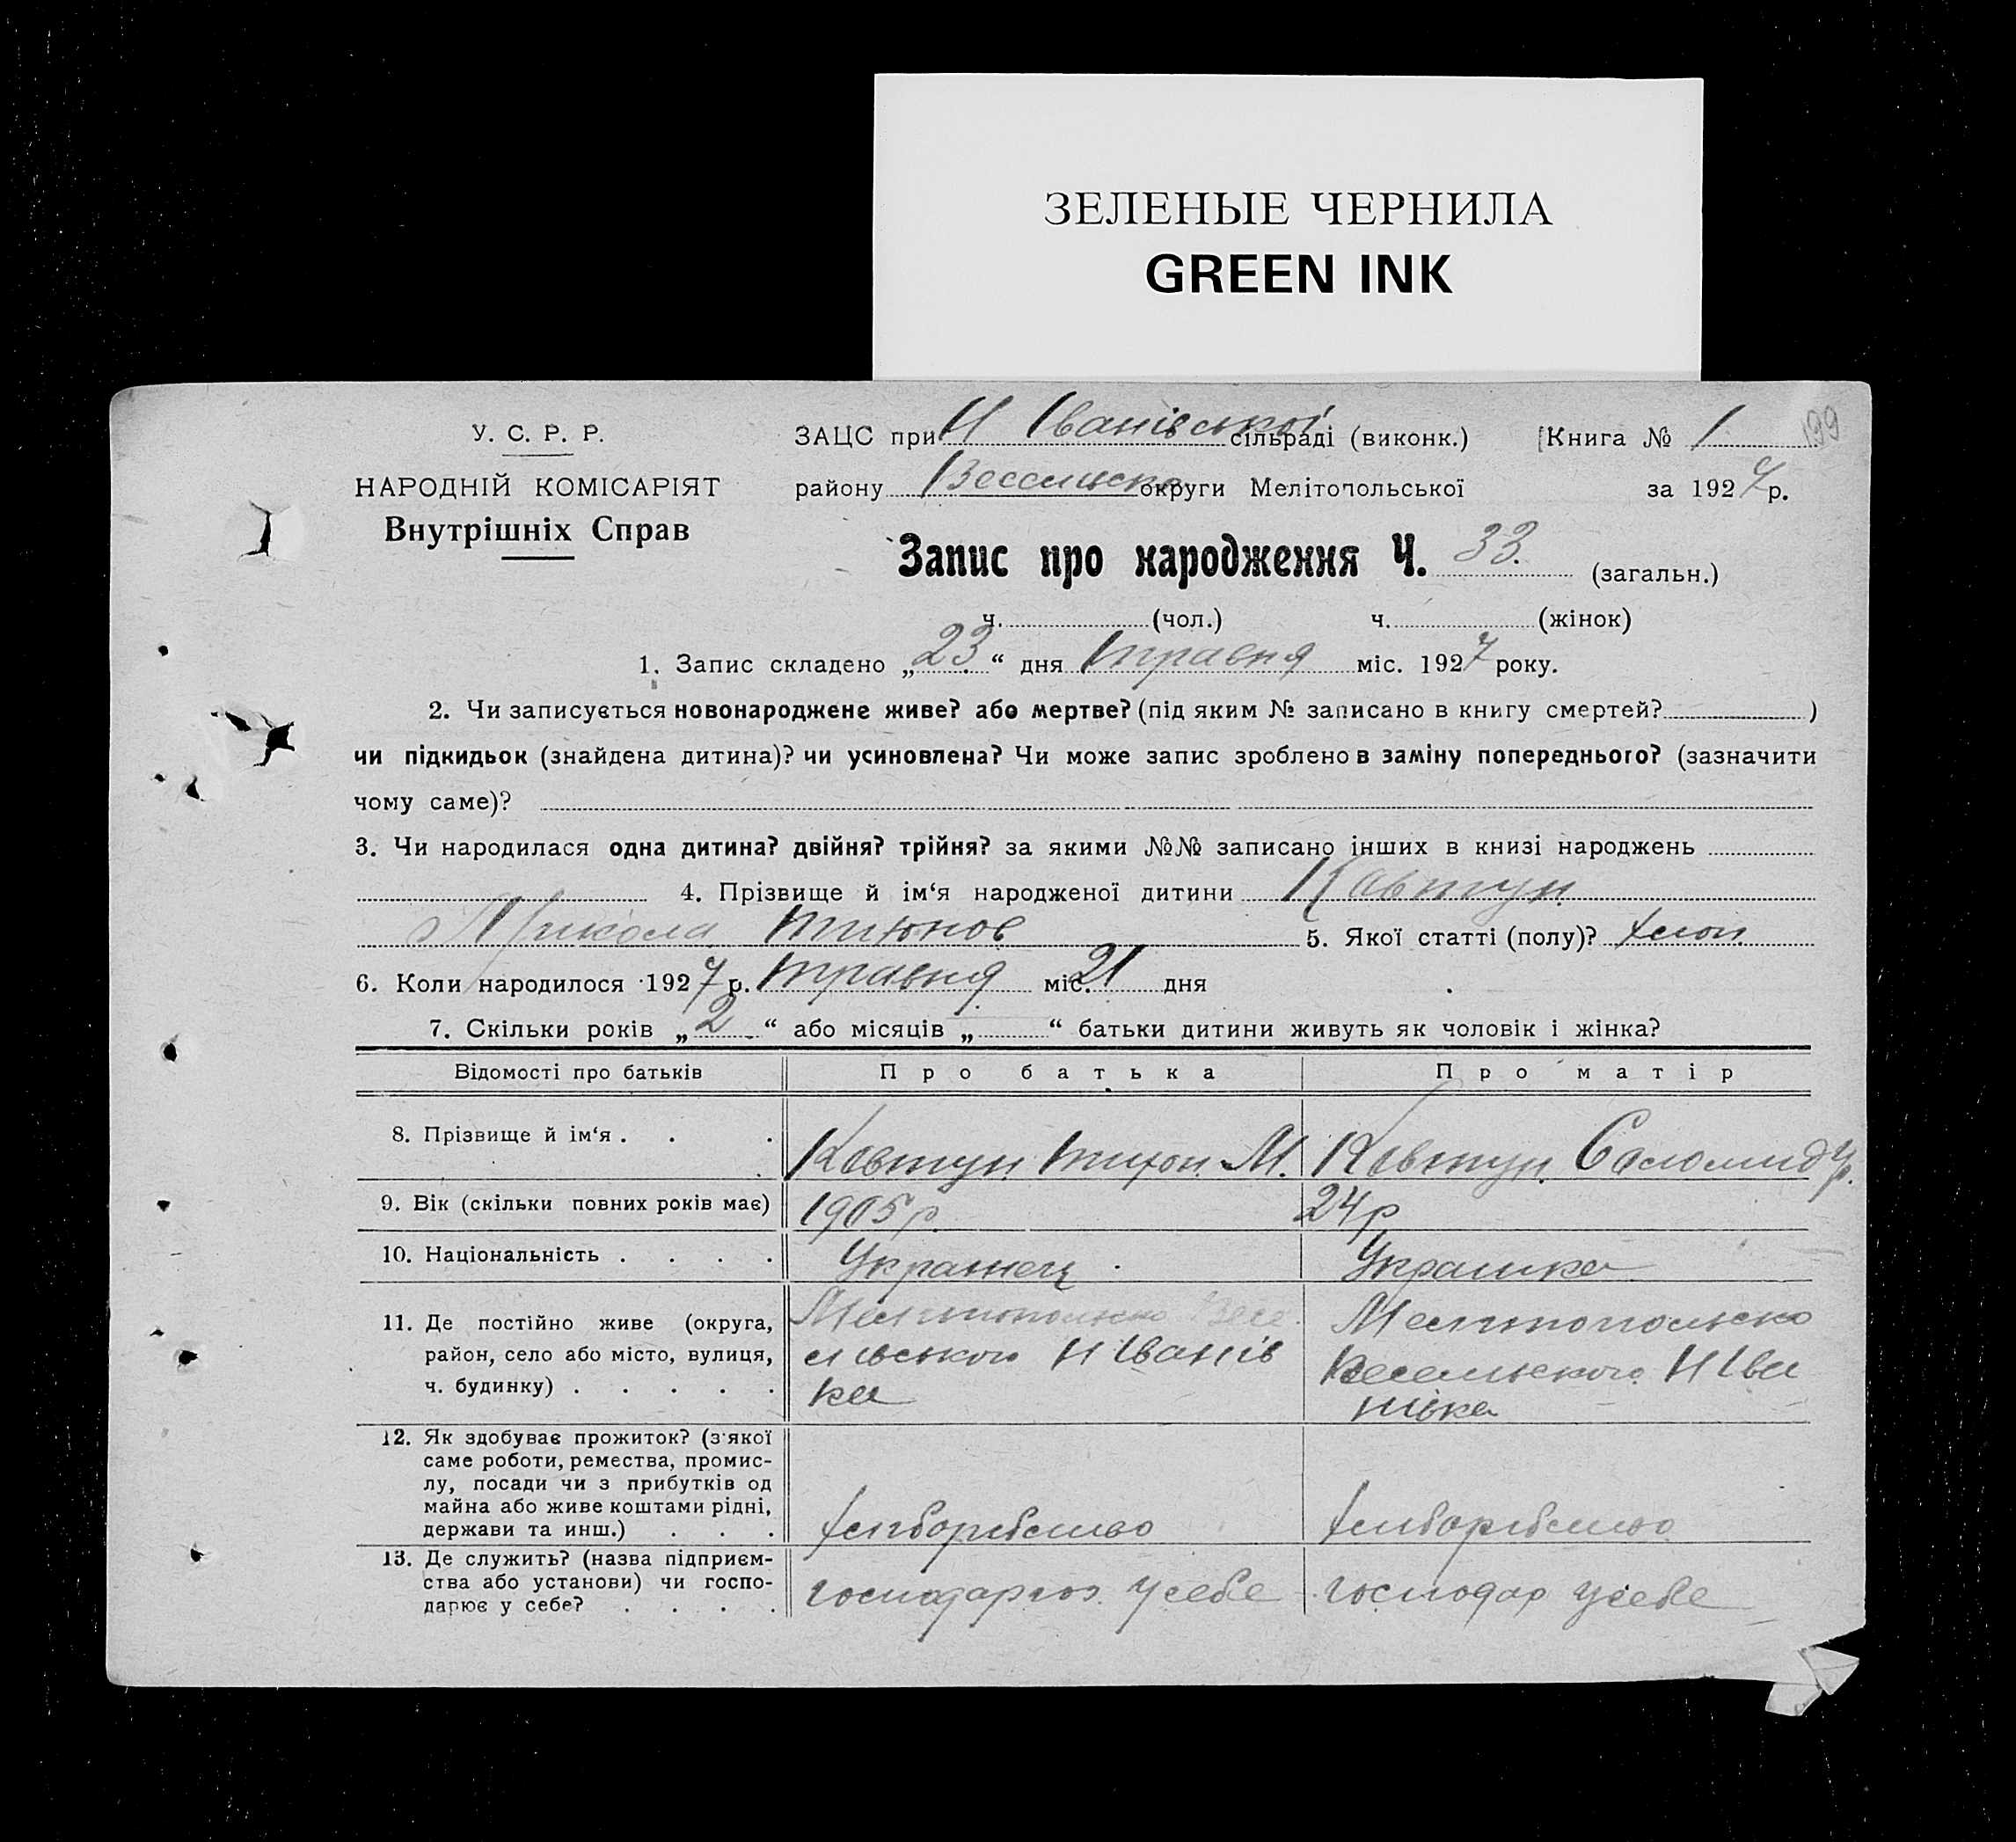 ЗЕЛЕНЫЕ ЧЕРНИЛА
GREEN INK
У. С. Р. Р.
НАРОДНІЙ КОМІСАРІЯТ
Внутрішніх Справ
ЗАЦС при Н Іванівської сільраді (виконк.) Книга № 1 199
району Веселмско округи Мелітопольської за 1927 р.
Запис про народження Ч. 33. (загальн.)
ч. (чол.) ч. (жінок)
1. Запис складено „23“ дня травня міс. 1927 року.
2. Чи записується новонароджене живе? або мертве? (під яким № записано в книгу смертей? )
чи підкидьок (знайдена дитина)? чи усиновлена? Чи може запис зроблено в заміну попереднього? (зазначити
чому саме)?
3. Чи народилася одна дитина? двійня? трійня? за якими №№ записано інших в книзі народжень
4. Прізвище й ім‘я народженої дитини Ковтун
Микола 5. Якої статті (полу)? хлоп
6. Коли народилося 1927 р. травня міс. 21 дня
7. Скільки років „2“ або місяців „ “ батьки дитини живуть як чоловік і жінка?
Відомості про батьків Про батька Про матір
8. Прізвище й ім‘я . . . Ковтун Тихон М. Ковтун Соломид
9. Вік (скільки повних років має) 1905 р. 24 р
10. Національність . . . . Украінец Украінка
11. Де постійно живе (округа,
район, село або місто, вулиця,
ч. будинку) . . . . .
Мелітопольско Весе
льського Н Іванів
ка
Мелітопольско
Веселмського Н Іва
нівка
12. Як здобуває прожиток? (з якої
саме роботи, ремества, промис-
лу, посади чи з прибутків од
майна або живе коштами рідні,
держави та инш.) . . .
хліборобство хліборобство
13. Де служить? (назва підприєм-
ства або установи) чи госпо-
дарює у себе? . . . .
господарюэ у себе господар у себе